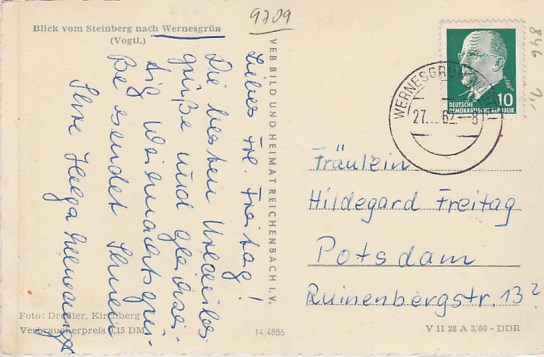 9709
846
Blick vom Steinberg nach Wernesgrün
(Vogtl.)
Liebes Frl. Freitag!
Die besten Urlaubs
grüße und gleichzei-
tig Weihnachtsgrü-
ße sendet Ihnen
Helga
VEB BILD UND HEIMAT REICHENBACH I. V.
WERNESGRÜN
27. 62-8
DEUTSCHE
DEMOKRATISCHE REPUBLIK
10
Fräulein
Hildegard Freitag
Potsdam
Ruinenbergstr. 13²
Foto: Dreßler, Kirchberg
Verbraucherpreis 0,15 DM
14 4886
V 11 28 A 3/66 - DDR